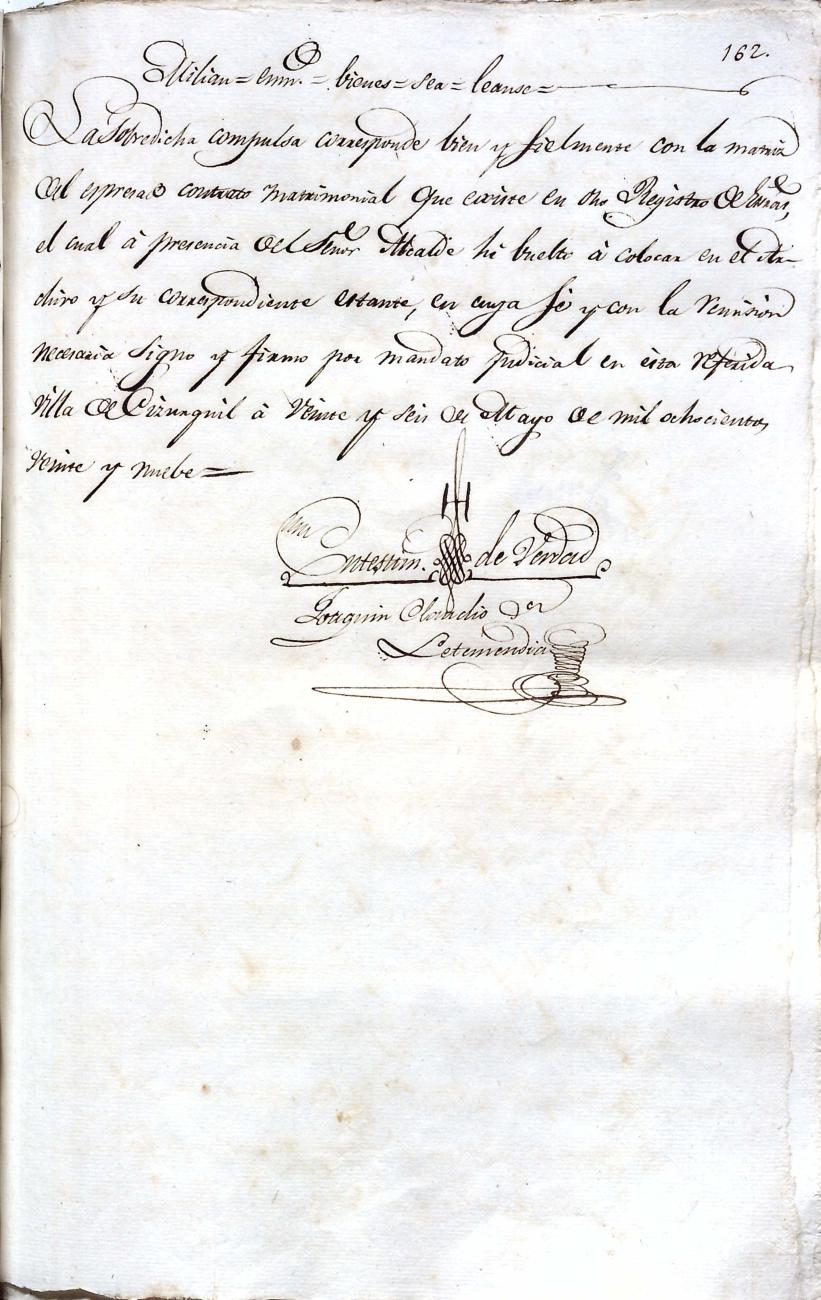 162.
Milian = enm.do = bienes = sea = leanse =
La Sobredicha compulsa corresponde bien y fielmente con la matriz
del espresado contrato matrimonial que existe en dho Registro de
el cual à presencia del Señor Alcalde hé buelto à colocar en el Ar-
chivo y su correspondiente estante, en cuya fé y con la remision
necesaria signo y firmo por mandato judicial en ésta referida
villa de Cizurquil à veinte y seis de Mayo de mil ochocientos
veinte y nuebe =
En testim. de Verdad
Joaquin Claudio de
Letemendia